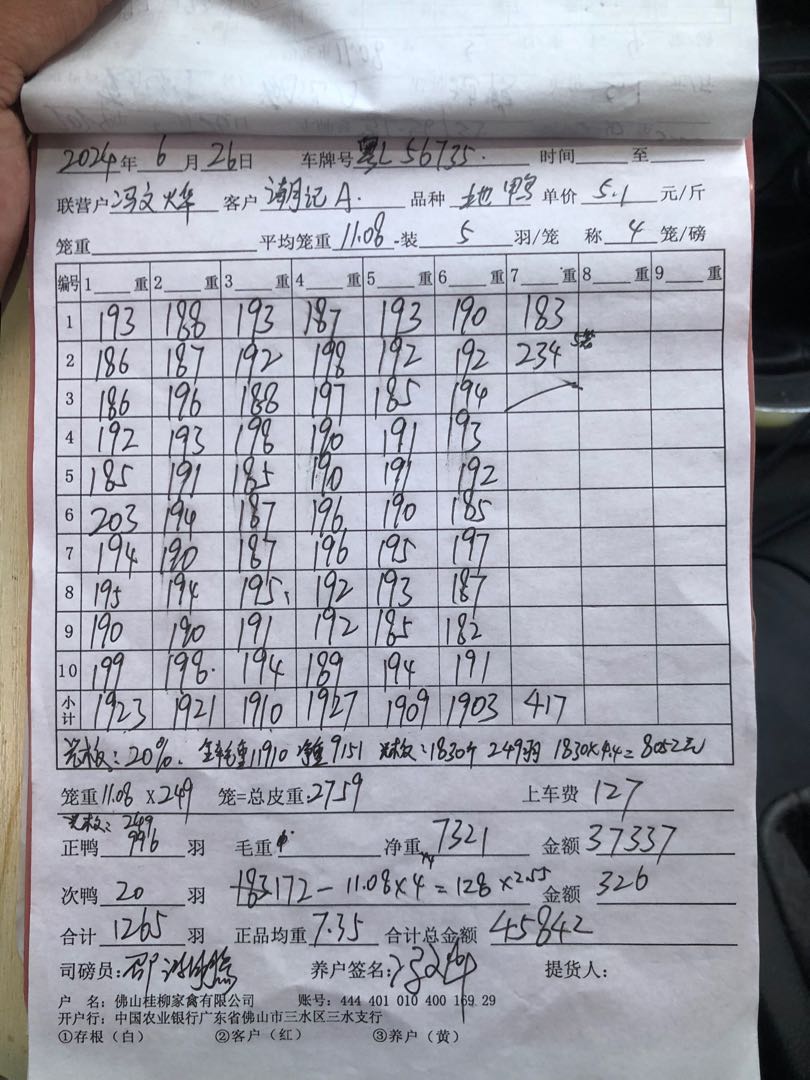 2024年 6 月 26日 车牌号 粤L 56735. 时间____至____
联营户 冯文烨 客户 潮记A. 品种 土地鸭 单价 5.1 元/斤
笼重____ 平均笼重 11.08 装 5 羽/笼 称 4 笼/磅
编号 1____重 2____重 3____重 4____重 5____重 6____重 7____重 8____重 9____重
1 193 188 193 187 193 190 183
2 186 187 192 198 192 192 234 5笼
3 186 196 188 197 185 194
4 192 193 198 190 191 193
5 185 191 185 190 191 192
6 203 194 187 196 190 185
7 194 190 187 196 195 197
8 195 194 195 192 193 187
9 190 190 191 192 185 182
10 199 198 194 189 194 191
小计 1923 1921 1910 1927 1909 1903 417
20%. 毛重11910 净重9151 :1830斤 249羽 1830×4.4=8052元
笼重 11.08 ×249 笼=总皮重:2759 上车费 127
249
正鸭 996 羽 毛重 净重 7321 金额 37337
次鸭 20 羽 172-11.08×4=128×2.55 金额 326
合计 1265 羽 正品均重 7.35 合计总金额 45842
司磅员: 养户签名: 提货人:
户 名:佛山桂柳家禽有限公司 账号:444 401 010 400 169 29
开户行:中国农业银行广东省佛山市三水区三水支行
①存根(白) ②客户(红) ③养户(黄)